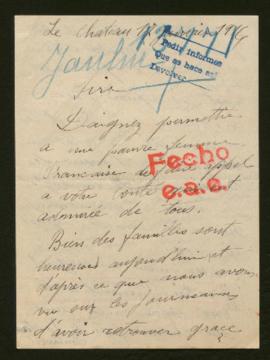 Le Chateau 17 1916
Pedir informes
Que se hace así
Devolver
Sire
Daignez permettre
à une pauvre femme
française de faire appel
a votre bonté
admirée de tous.
Fecho
e.a.e.
Bien des familles sont
heureuses aujourd'hui et
d'après ce que nous avons
vu sur les journeaux
d'avoir retrouver grace